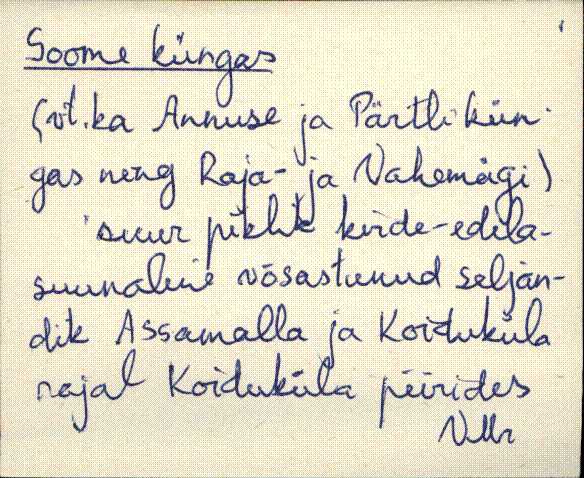 Soome küngas
(vt. ka Annuse ja Pärtli kün-
gas ning Raja- ja Vahemägi)
suur piklik kirde-edela-
suunaline võsastunud seljan-
dik Assamalla ja Koiduküla
rajal Koiduküla piirides